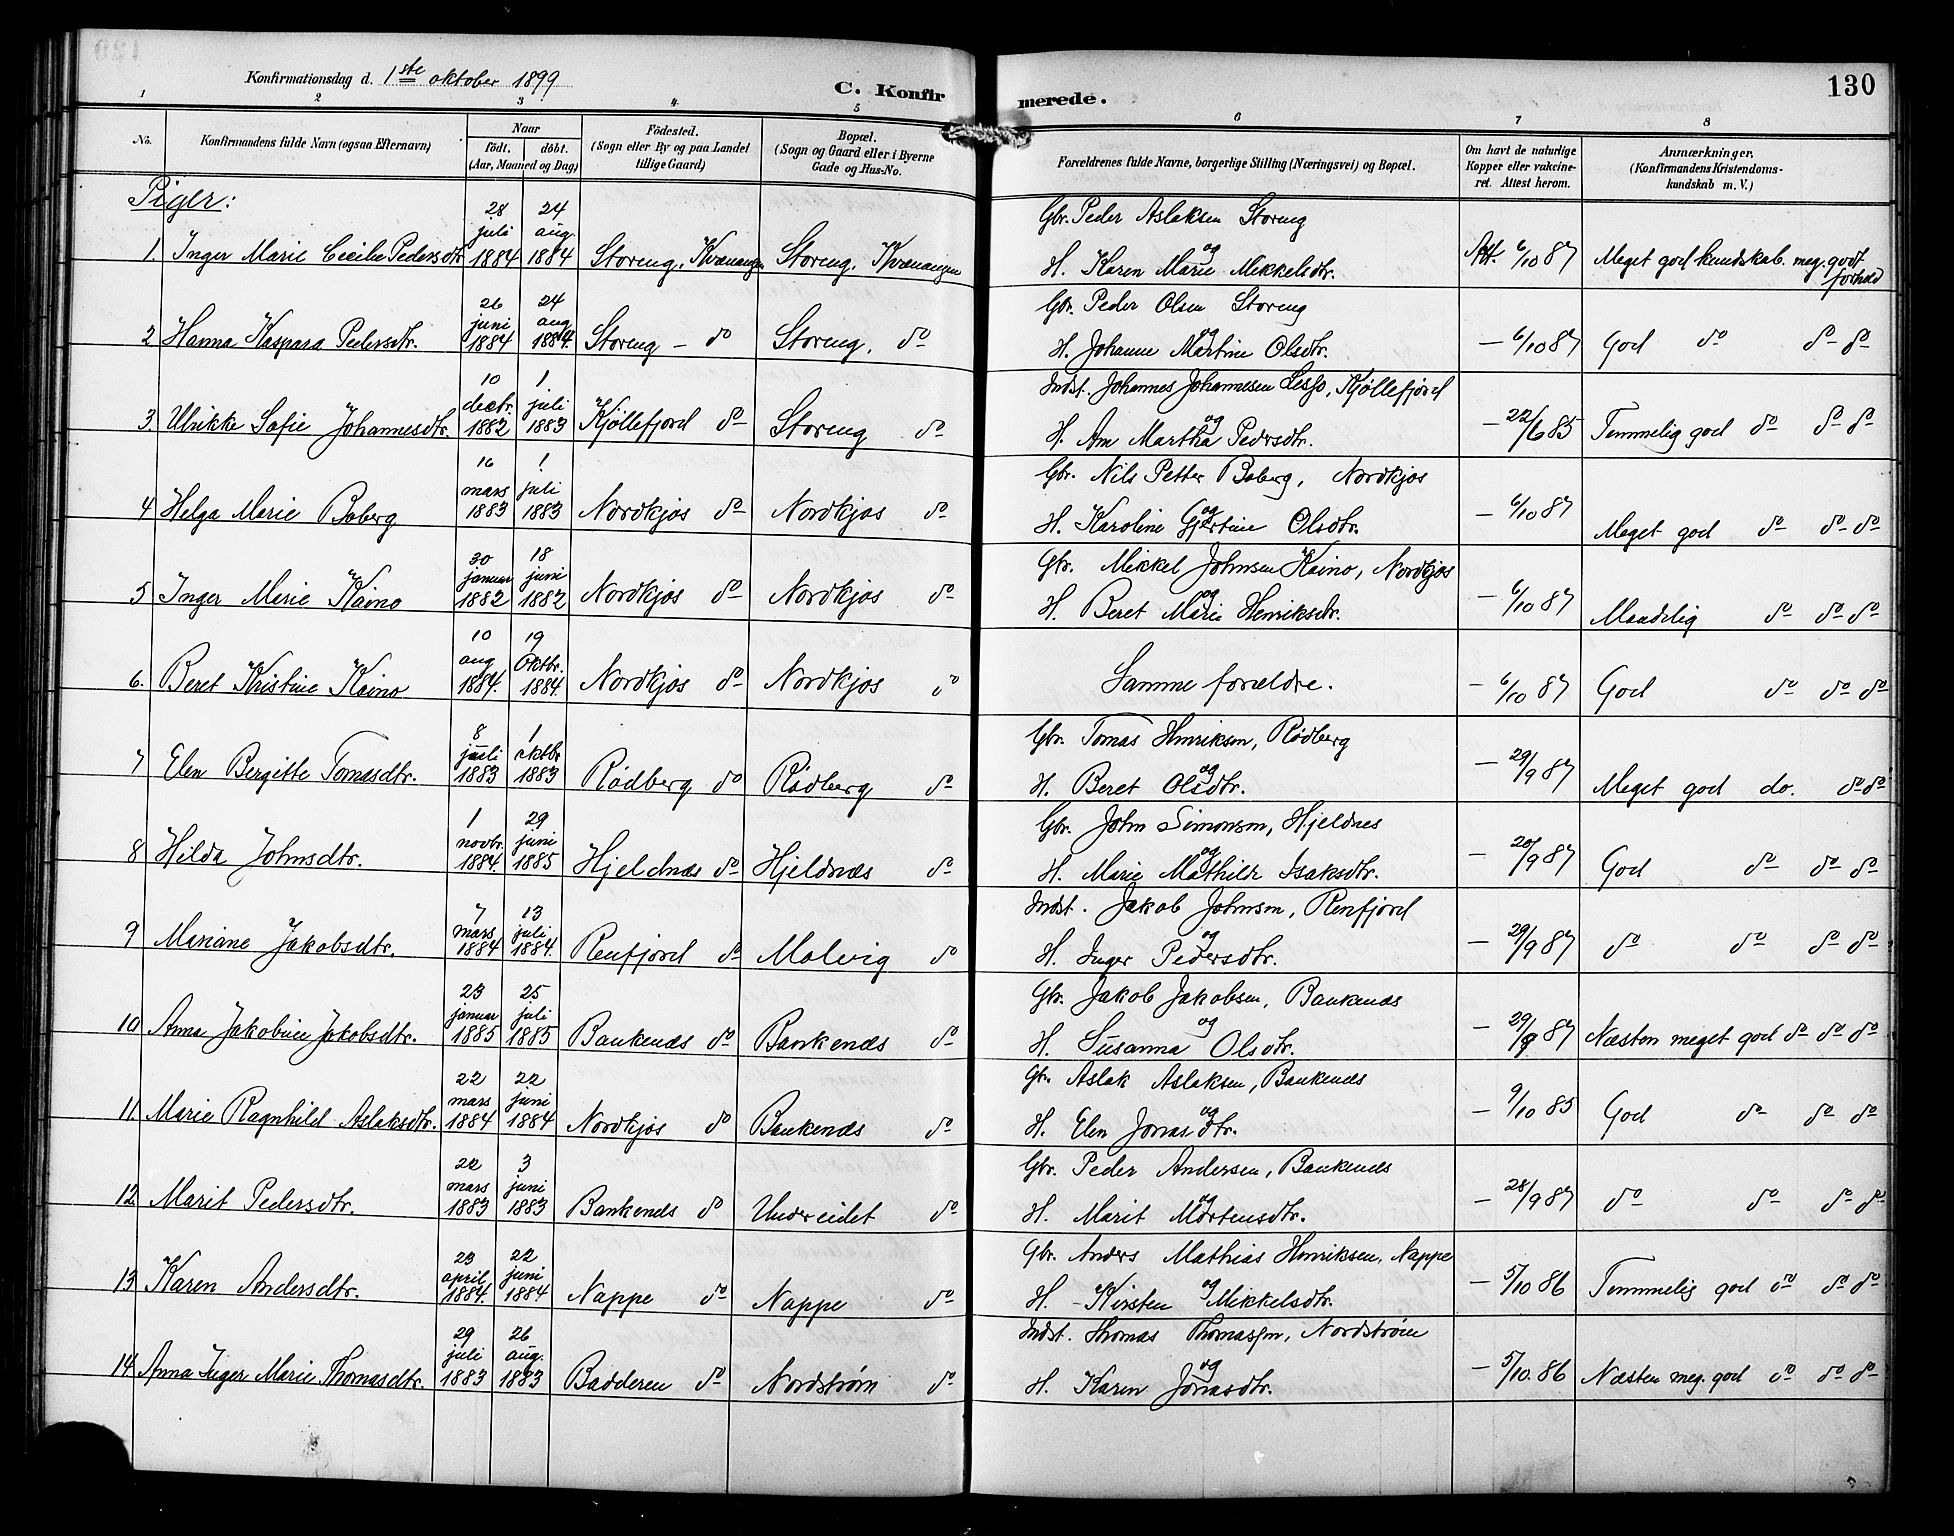 130
Konfirmationsdag d. 1ste oktober 1899
C. Konfirmerede.
1 2 3 4 5 6 7 8
No. Konfirmandens fulde Navn (ogsaa Efternavn) Naar födt. döbt. (Aar, Maaned og Dag) Födested. (Sogn eller By og paa Landet tillige Gaard) Bopæl. (Sogn og Gaard eller i Byerne Gade og Hus-No. Forældrenes fulde Navne, borgerlige Stilling (Næringsvei) og Bopæl. Om havt de naturlige Kopper eller vakcineret. Attest herom. Anmærkninger. (Konfirmandens Kristendomskundskab m. V.)
Piger:
1. Inger Marie Cecilie Pedersdtr 28 juli 1884 24 aug. 1884 Storeng, Kvænangen Storeng, Kvænangen Gbr. Peder Aslaksen Storeng og H. Karen Marie Mikkelsdtr. Att. 6/10 87 Meget god kundskab. meg. godt forhold
2 Hanna Kaspara Pedersdtr. 26 juni 1884 24 aug 1884. Storeng - do Storeng, do Gbr. Peder Olsen Storeng og H. Johanne Martine Olsdtr. - 6/10 87 God do do do
3. Ulrikke Sofie Johannesdtr. 10 dectr. 1882 1. juli 1883 Kjöllefjord do Storeng do Indst. Johannes Johannesen Kjöllefjord og H. Ane Martha Pedersdtr. - 22/6 85 Temmelig god do do do
4 Helga Marie Boberg 16 mars 1883 1 juli 1883 Nordkjos do Nordkjos do Gbr. Nils Petter Boberg, Nordkjos og H. Karoline Gjertine Olsdtr. - 6/10 87 Meget god do do do
5 Inger Marie Kaino 30 januar 1882 18 juni 1882 Nordkjos do Nordkjos do Gbr. Mikkel Johnsen Kaino, Nordkjos og H. Beret Marie Henriksdtr. - 6/10 87 Maadelig do do do
6. Beret Kristine Kaino 10 aug 1884. 19 Oktbr. 1884. Nordkjos do Nordkjos do Samme forældre. - 6/10 87 God do do do
7 Elen Bergitte Tomasdtr. 8 juli 1883 1 oktbr 1883 Rödberg do Rödberg do Gbr. Tomas Henriksen, Rödberg og H. Beret Olsdtr. - 29/9 87 Meget god do. do do
8 Hilda Johnsdtr. 1 novbr. 1884. 29 juni 1885 Hjeldnæs do Hjeldnæs do Gbr. John Simonsen, Hjeldnes og H. Marie Mathilde Isaksdtr. - 20/9 87 God do do do
9 Mariane Jakobsdtr. 7 mars 1884 13 juli 1884. Renfjord do Molvig do Indst. Jakob Johnsen, Renfjord og H. Inger Pedersdtr. - 29/9 87 do do do do
10 Anna Jakobine Jakobsdtr. 23 januar 1885 25 juli 1885 Bankenæs do Bankenæs do Gbr. Jakob Jakobsen, Bankenæs og H. Susanna Olsdtr. - 29/9 87 Næsten meget god do do do
11. Marie Ragnhild Aslaksdtr. 22 mars 1884 22 juni 1884 Nordkjos do Bankenæs do Gbr. Aslak Aslaksen, Bankenæs og H. Elen Jonasdtr. - 9/10 85 God do do do
12 Marit Pedersdtr. 22 mars 1883 3 juni 1883 Bankenæs do Undereidet do Gbr. Peder Andersen, Bankenæs og H. Marit Mortensdtr. - 28/9 87 do do do do
13 Karen Andersdtr. 23 april 1884. 22 juni 1884 Nappe do Nappe do Gbr. Anders Mathias Henriksen, Nappe og H. Kirsten Mikkelsdtr. - 5/10 86 Temmelig god do do do
14. Anna Inger Marie Thomasdtr. 29 juli 1883 26 aug. 1883 Badderen do Nordström do Indst. Thomas Thomassen, Nordström og H. Karen Jonasdtr. - 5/10. 86 Næsten meg. god do do do